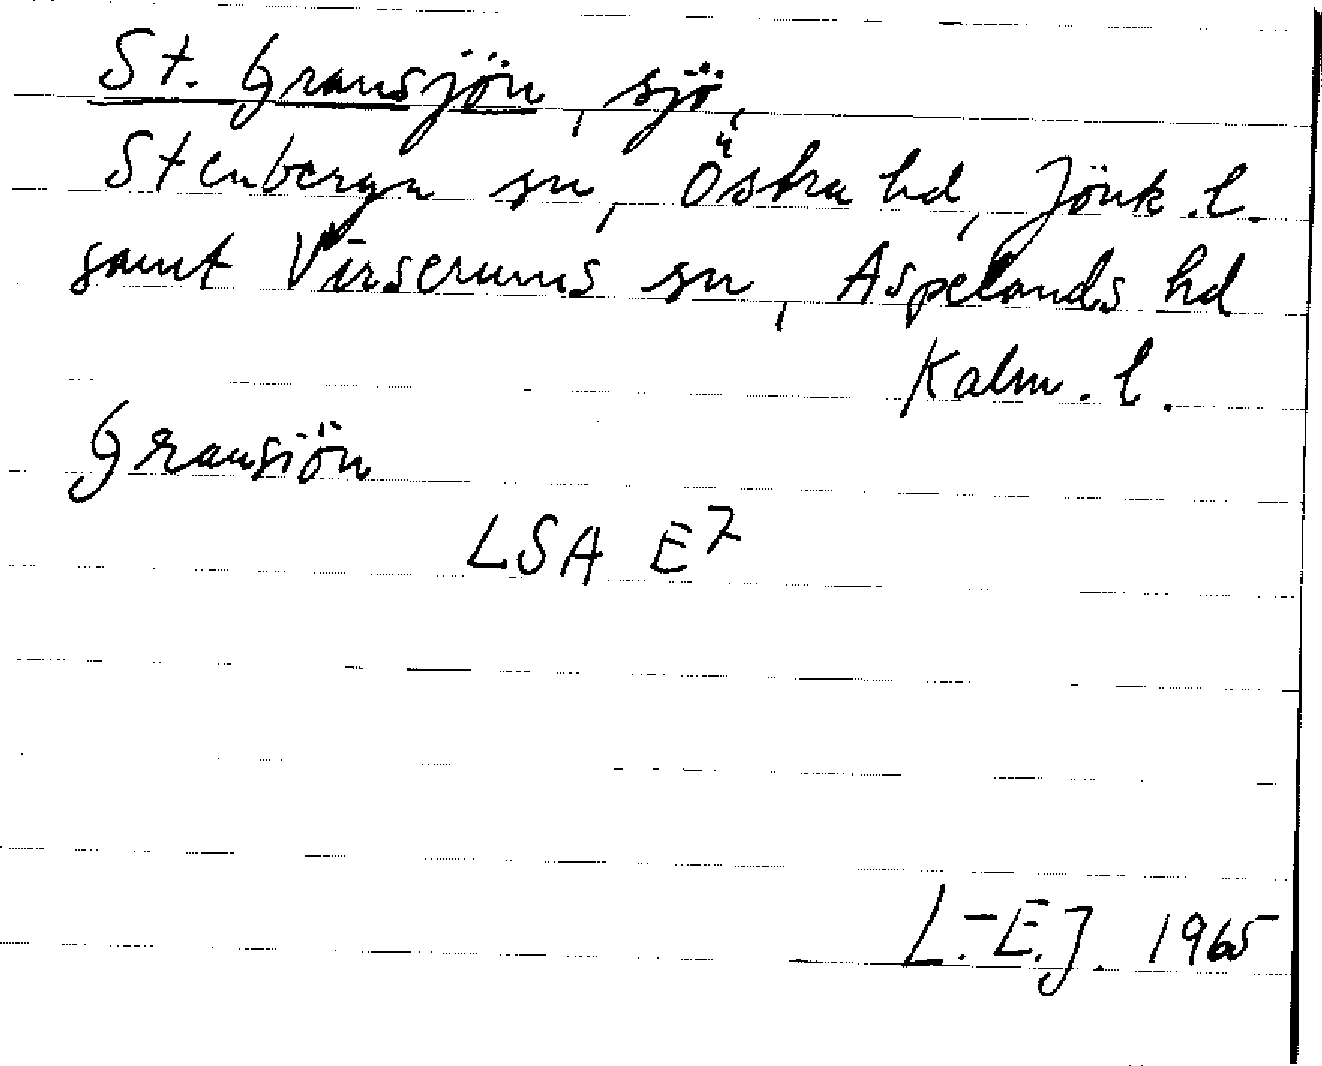 St. Gransjön, sjö,
Stenberga sn, Östra hd, Jönk. l.
samt Virserums sn, Aspelands hd
Kalm. l.
Gransiön
LSA E7
L.-E.J. 1965